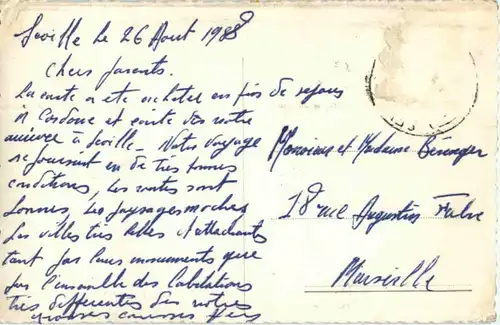 Séville le 26 Aout 1988
Chers parents.
La carte a ete achetée en fin de sejour
a Cordoue et ecrite des notre
arrivée a Seville. Notre voyage
se poursuit en de très bonnes
conditions, les routes sont
bonnes, les paysages moches
les villes très belles et attachantes
tant par leurs monuments que
par l'ensemble des habitations
très differentes des notres
Monsieur et Madame Bérenger
18 rue Augustin Fabre
Marseille